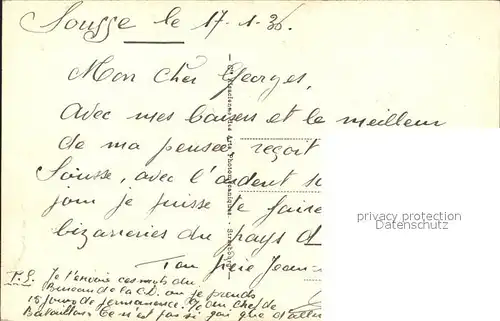 Sousse le 17-1-36.
Mon cher Georges,
Avec mes baisers et le meilleur
de ma pensée reçoit
Sousse, avec l'ardent s
jour je puisse te faire
bizarreries du pays d
Ton frère Jean-
P.S. Je t'envoie ces mots du
Bureau de la C.D. où je prends
15 jours de permanence.
Bataillon Ce n'est pas si gai que d'aller
privacy protection
Datenschutz